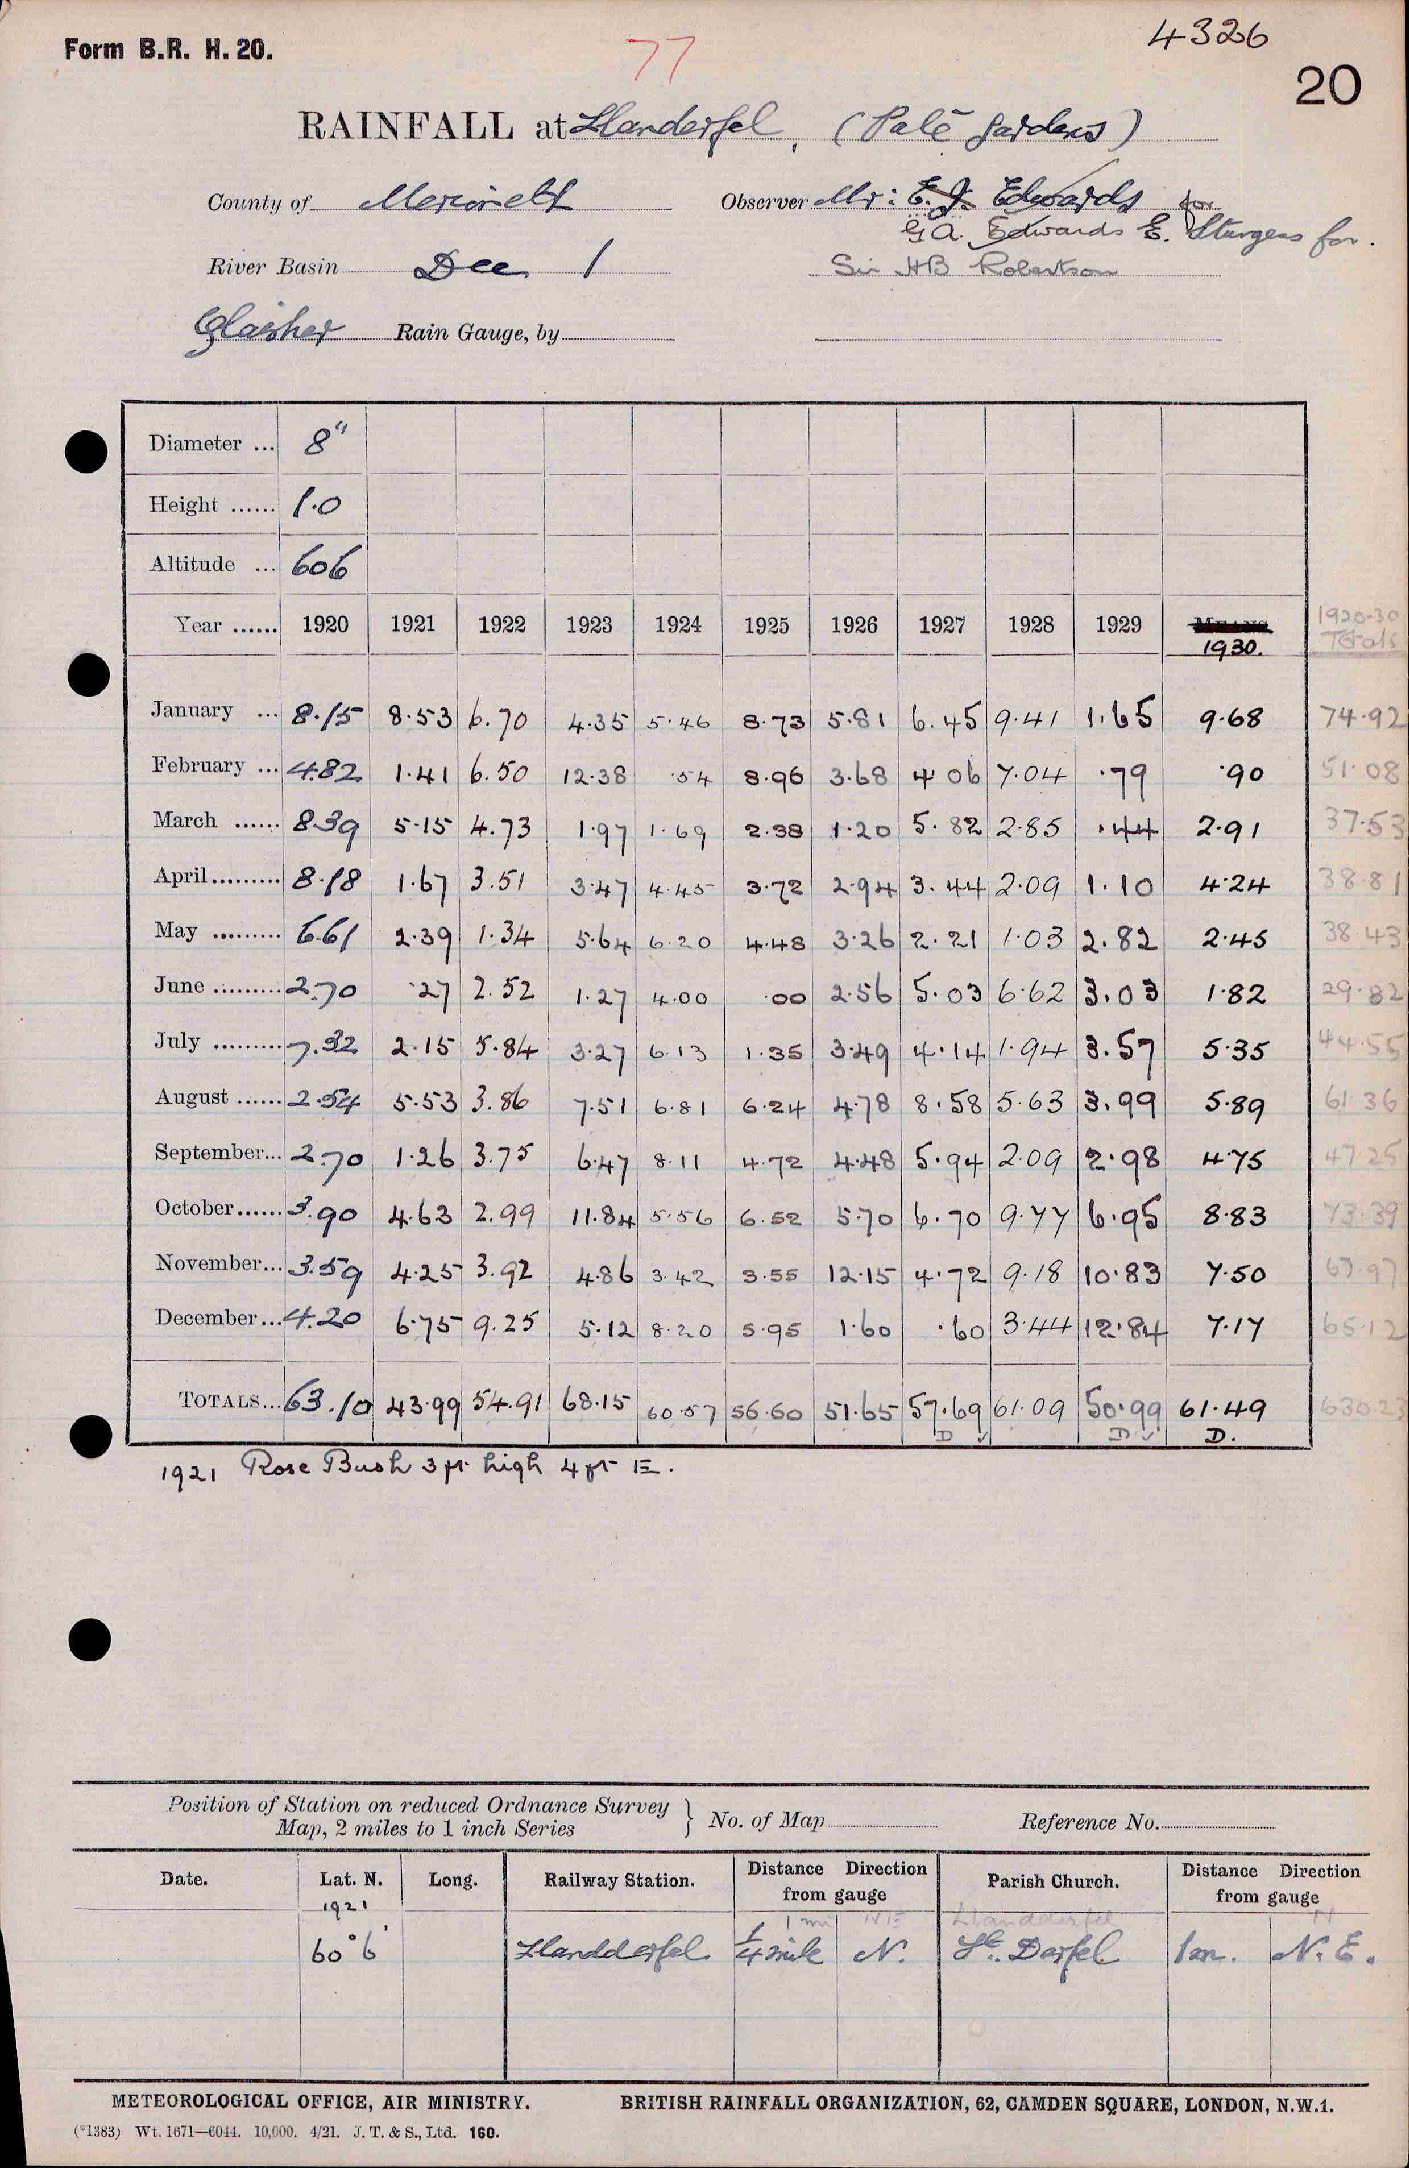 Form B.R. H. 20.
77
4326
20
RAINFALL at Llanderfel, (Palé Gardens)
County of Merioneth Observer Mr: E. J. Edwards for
G A. Edwards E. Sturgess for.
River Basin Dee 1 Sir HB Robertson
Glaisher Rain Gauge, by
Diameter ... 8"
Height ...... 1.0
Altitude ... 606
Year ...... 1920 1921 1922 1923 1924 1925 1926 1927 1928 1929 MEANS 1930. 1920-30 Totals
January ... 8.15 8.53 6.70 4.35 5.46 8.73 5.81 6.45 9.41 1.65 9.68 74.92
February ... 4.82 1.41 6.50 12.38 .54 8.96 3.68 4 06 7.04 .79 .90 51.08
March ...... 8.39 5.15 4.73 1.97 1.69 2.38 1.20 5.82 2.85 .44 2.91 37.53
April......... 8.18 1.67 3.51 3.47 4.45 3.72 2.94 3.44 2.09 1.10 4.24 38.81
May ......... 6.61 2.39 1.34 5.64 6.20 4.48 3.26 2.21 1.03 2.82 2.45 38.43
June ......... 2.70 .27 2.52 1.27 4.00 .00 2.56 5.03 6.62 3.03 1.82 29.82
July ......... 7.32 2.15 5.84 3.27 6.13 1.35 3.49 4.14 1.94 3.57 5.35 44.55
August ...... 2.54 5.53 3.86 7.51 6.81 6.24 4.78 8.58 5.63 3.99 5.89 61.36
September... 2.70 1.26 3.75 6.47 8.11 4.72 4.48 5.94 2.09 2.98 4.75 47.25
October...... 3.90 4.63 2.99 11.84 5.56 6.52 5.70 6.70 9.77 6.95 8.83 73.39
November... 3.59 4.25 3.92 4.86 3.42 3.55 12.15 4.72 9.18 10.83 7.50 67.97
December... 4.20 6.75 9.25 5.12 8.20 5.95 1.60 .60 3.44 12.84 7.17 65.12
TOTALS... 63.10 43.99 54.91 68.15 60.57 56.60 51.65 57.69 61.09 50.99 61.49 630.23
D ✓ D ✓ D.
1921 Rose Bush 3 ft high 4 ft E.
Position of Station on reduced Ordnance Survey
Map, 2 miles to 1 inch Series } No. of Map Reference No.
Date. Lat. N. Long. Railway Station. Distance Direction from gauge Parish Church. Distance Direction from gauge
1921 1 mi NE Llandderfel N
60° 6' Llandderfel 1/4 mile N. St. Derfel 1m. N. E.
METEOROLOGICAL OFFICE, AIR MINISTRY. BRITISH RAINFALL ORGANIZATION, 62, CAMDEN SQUARE, LONDON, N.W.1.
(*1383) Wt. 1671—6044. 10,000. 4/21. J. T. & S., Ltd. 160.